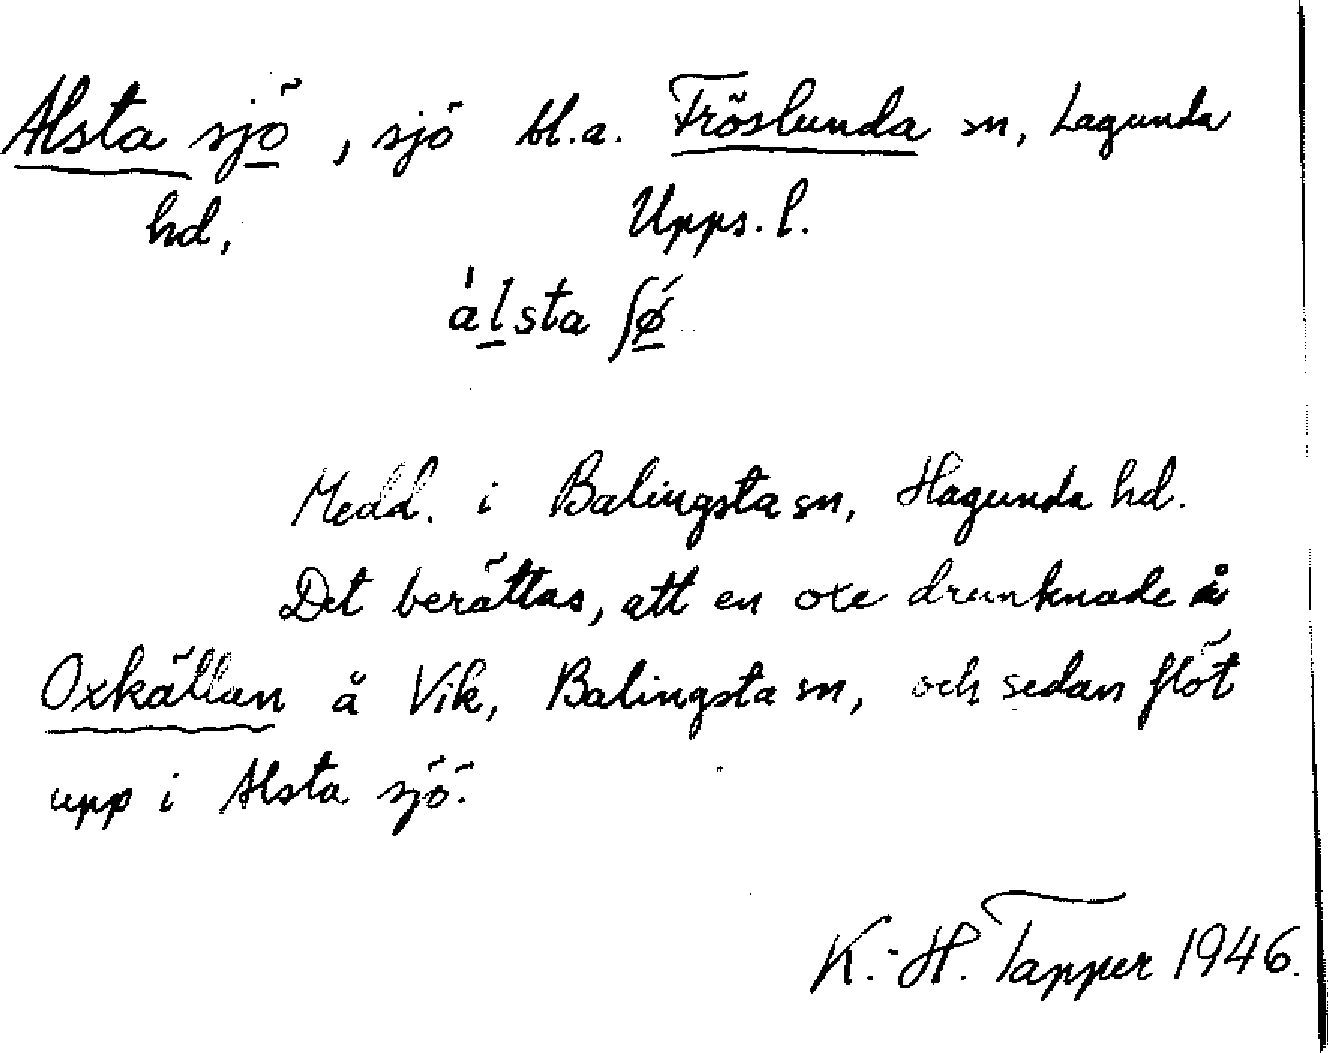 Alsta sjö, sjö bl.a. Fröslunda sn, Lagunda
hd, Upps. l.
álsta ʃǿ
Medd. i Balingsta sn, Hagunda hd.
Det berättas, att en oxe drunknade i
Oxkällan å Vik, Balingsta sn, och sedan flöt
upp i Alsta sjö.
K.-H. Tapper 1946.